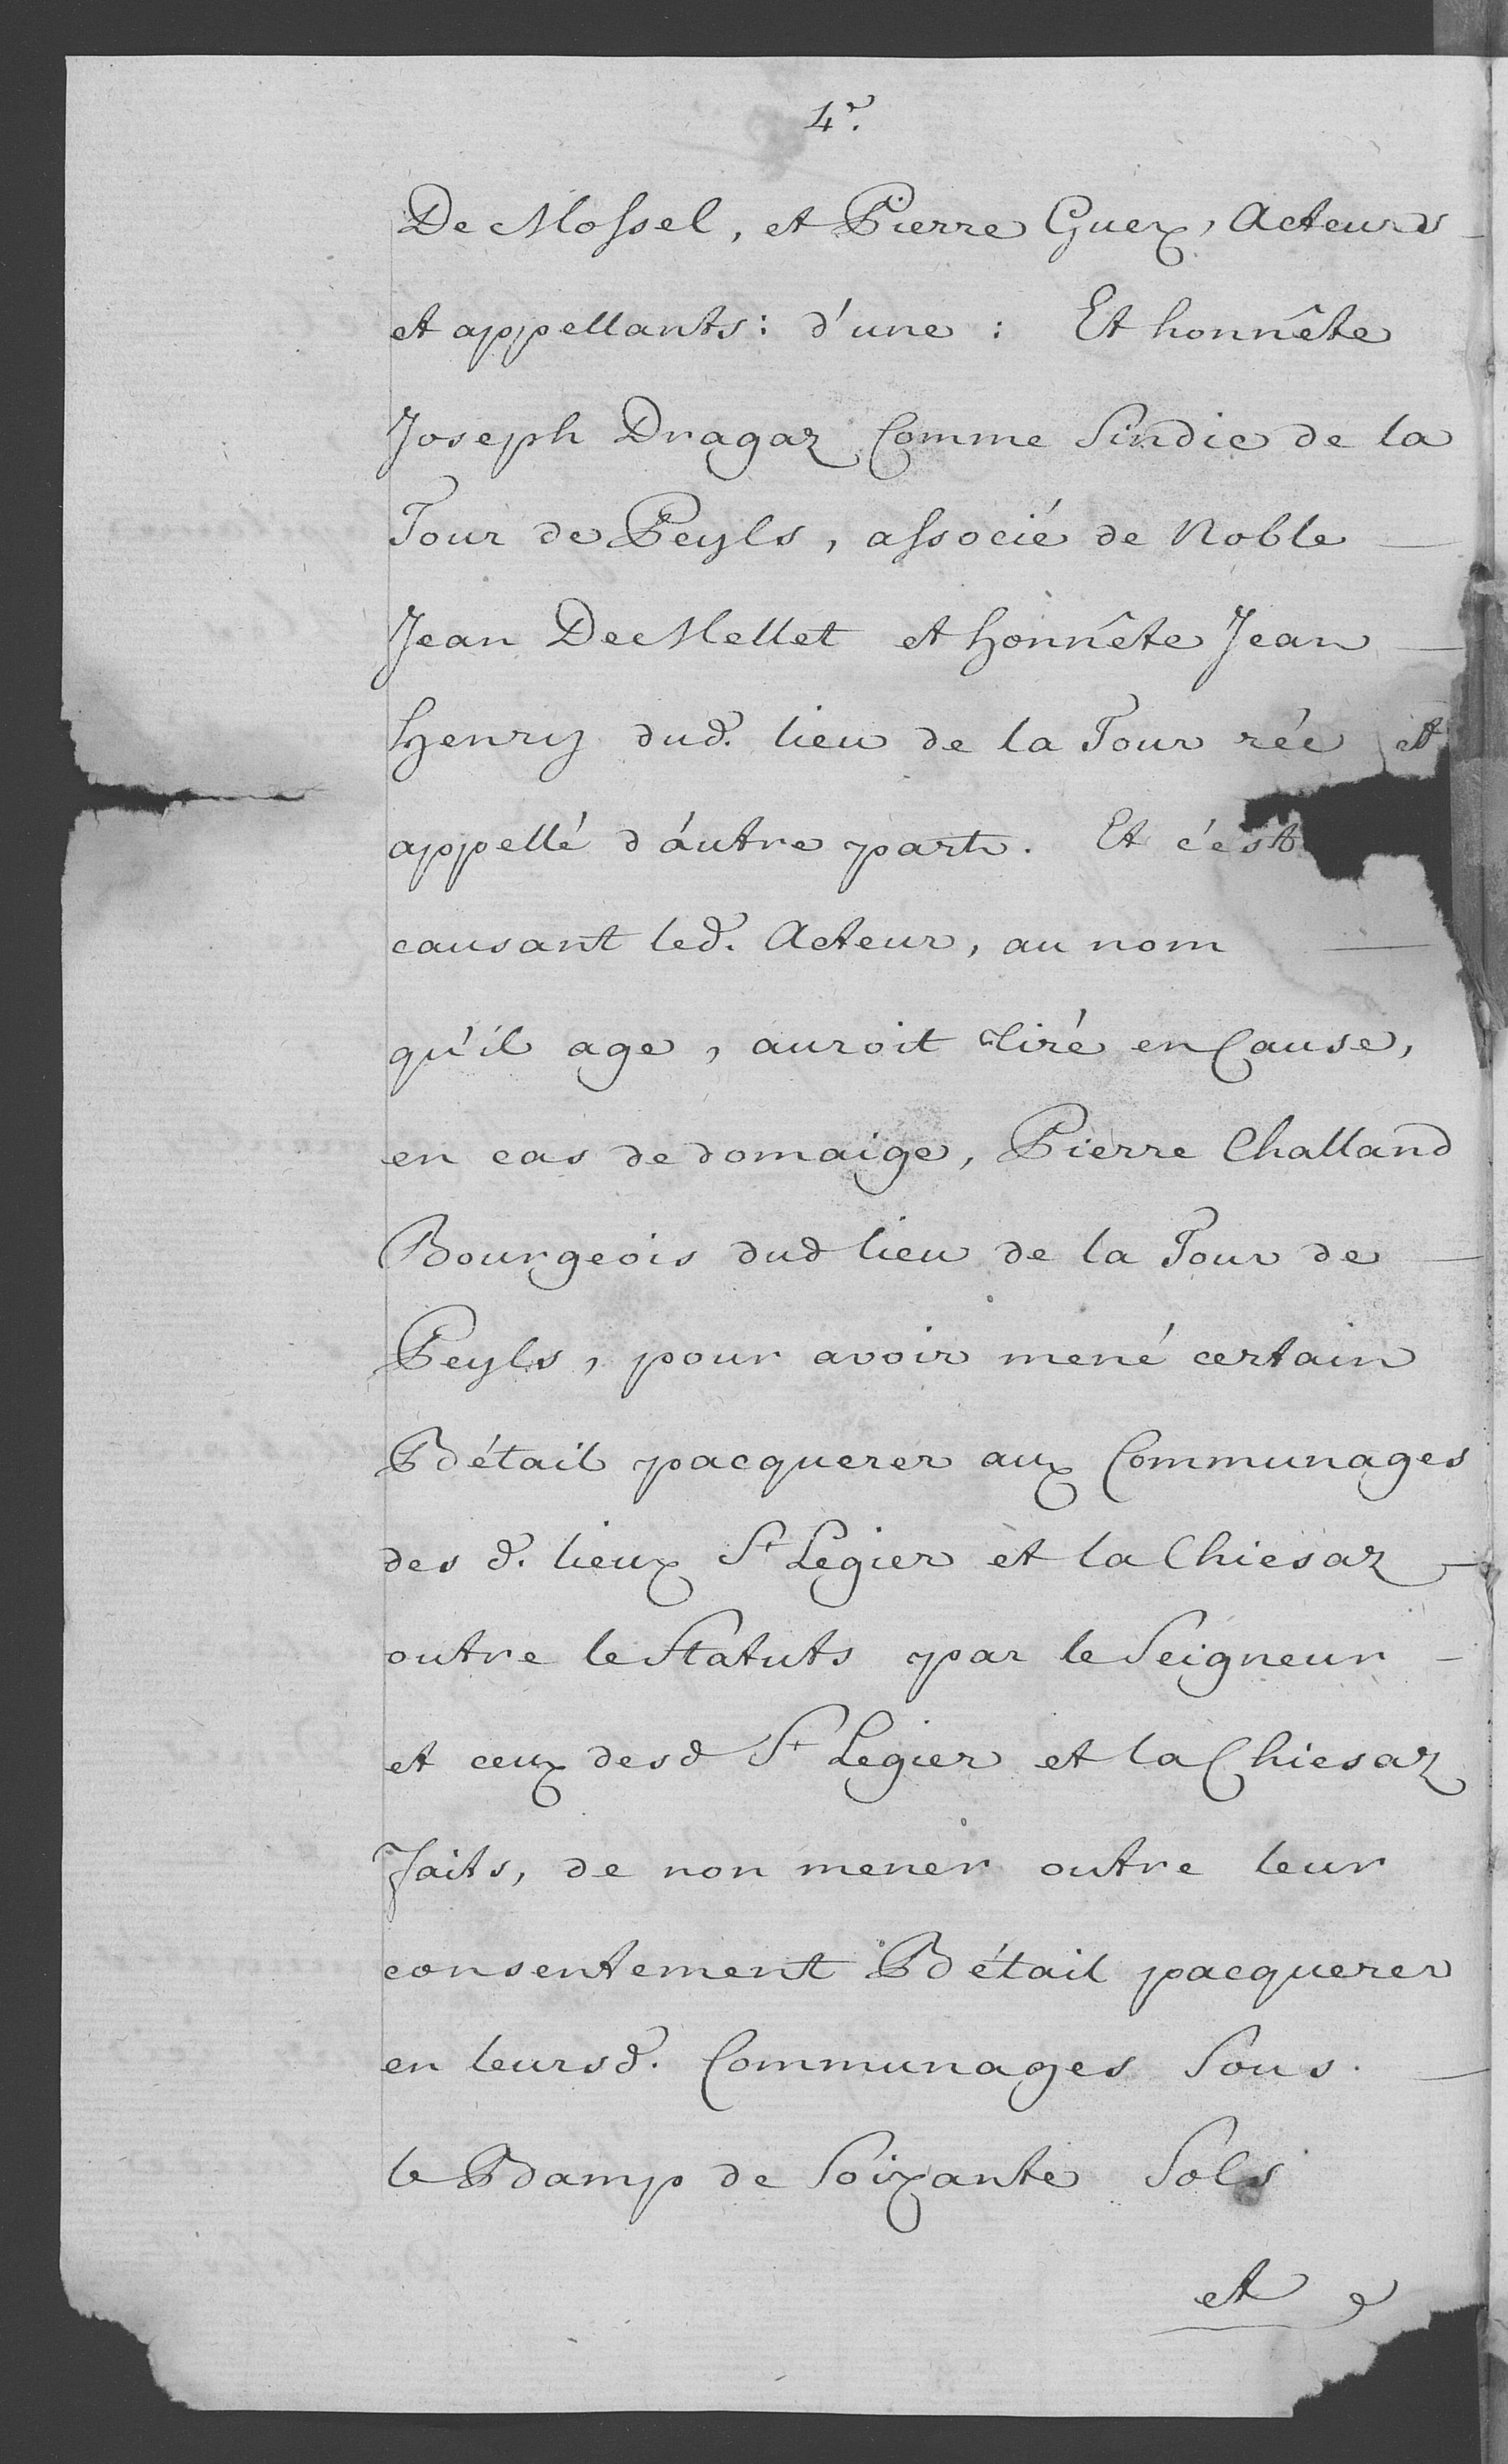 4.e
De Mossel, et Pierre Guex, Acteurs
et appellants: d'une : Et honnête
Joseph Dragaz Comme Sindic de la
Tour de Peyls, associé de Noble
Jean DeMellet et honnête Jean
Henry dud. lieu de la Tour rée et
appellé d'autre part. Et c'est
causant led. Acteur, au nom
qu'il age, auroit tiré en Cause,
en cas de domaige, Pierre Challand
Bourgeois dud lieu de la Tour de
Peyls, pour avoir mené certain
Bétail pacquerer aux Communages
des d. lieux St Legier et la Chiesaz
outre le Statuts par le Seigneur
et ceux desd St Legier et la Chiesaz
faits, de non mener outre leur
consentement Bétail pacquerer
en leursd. Communages Sous
le Bamp de Soixante Sols
et